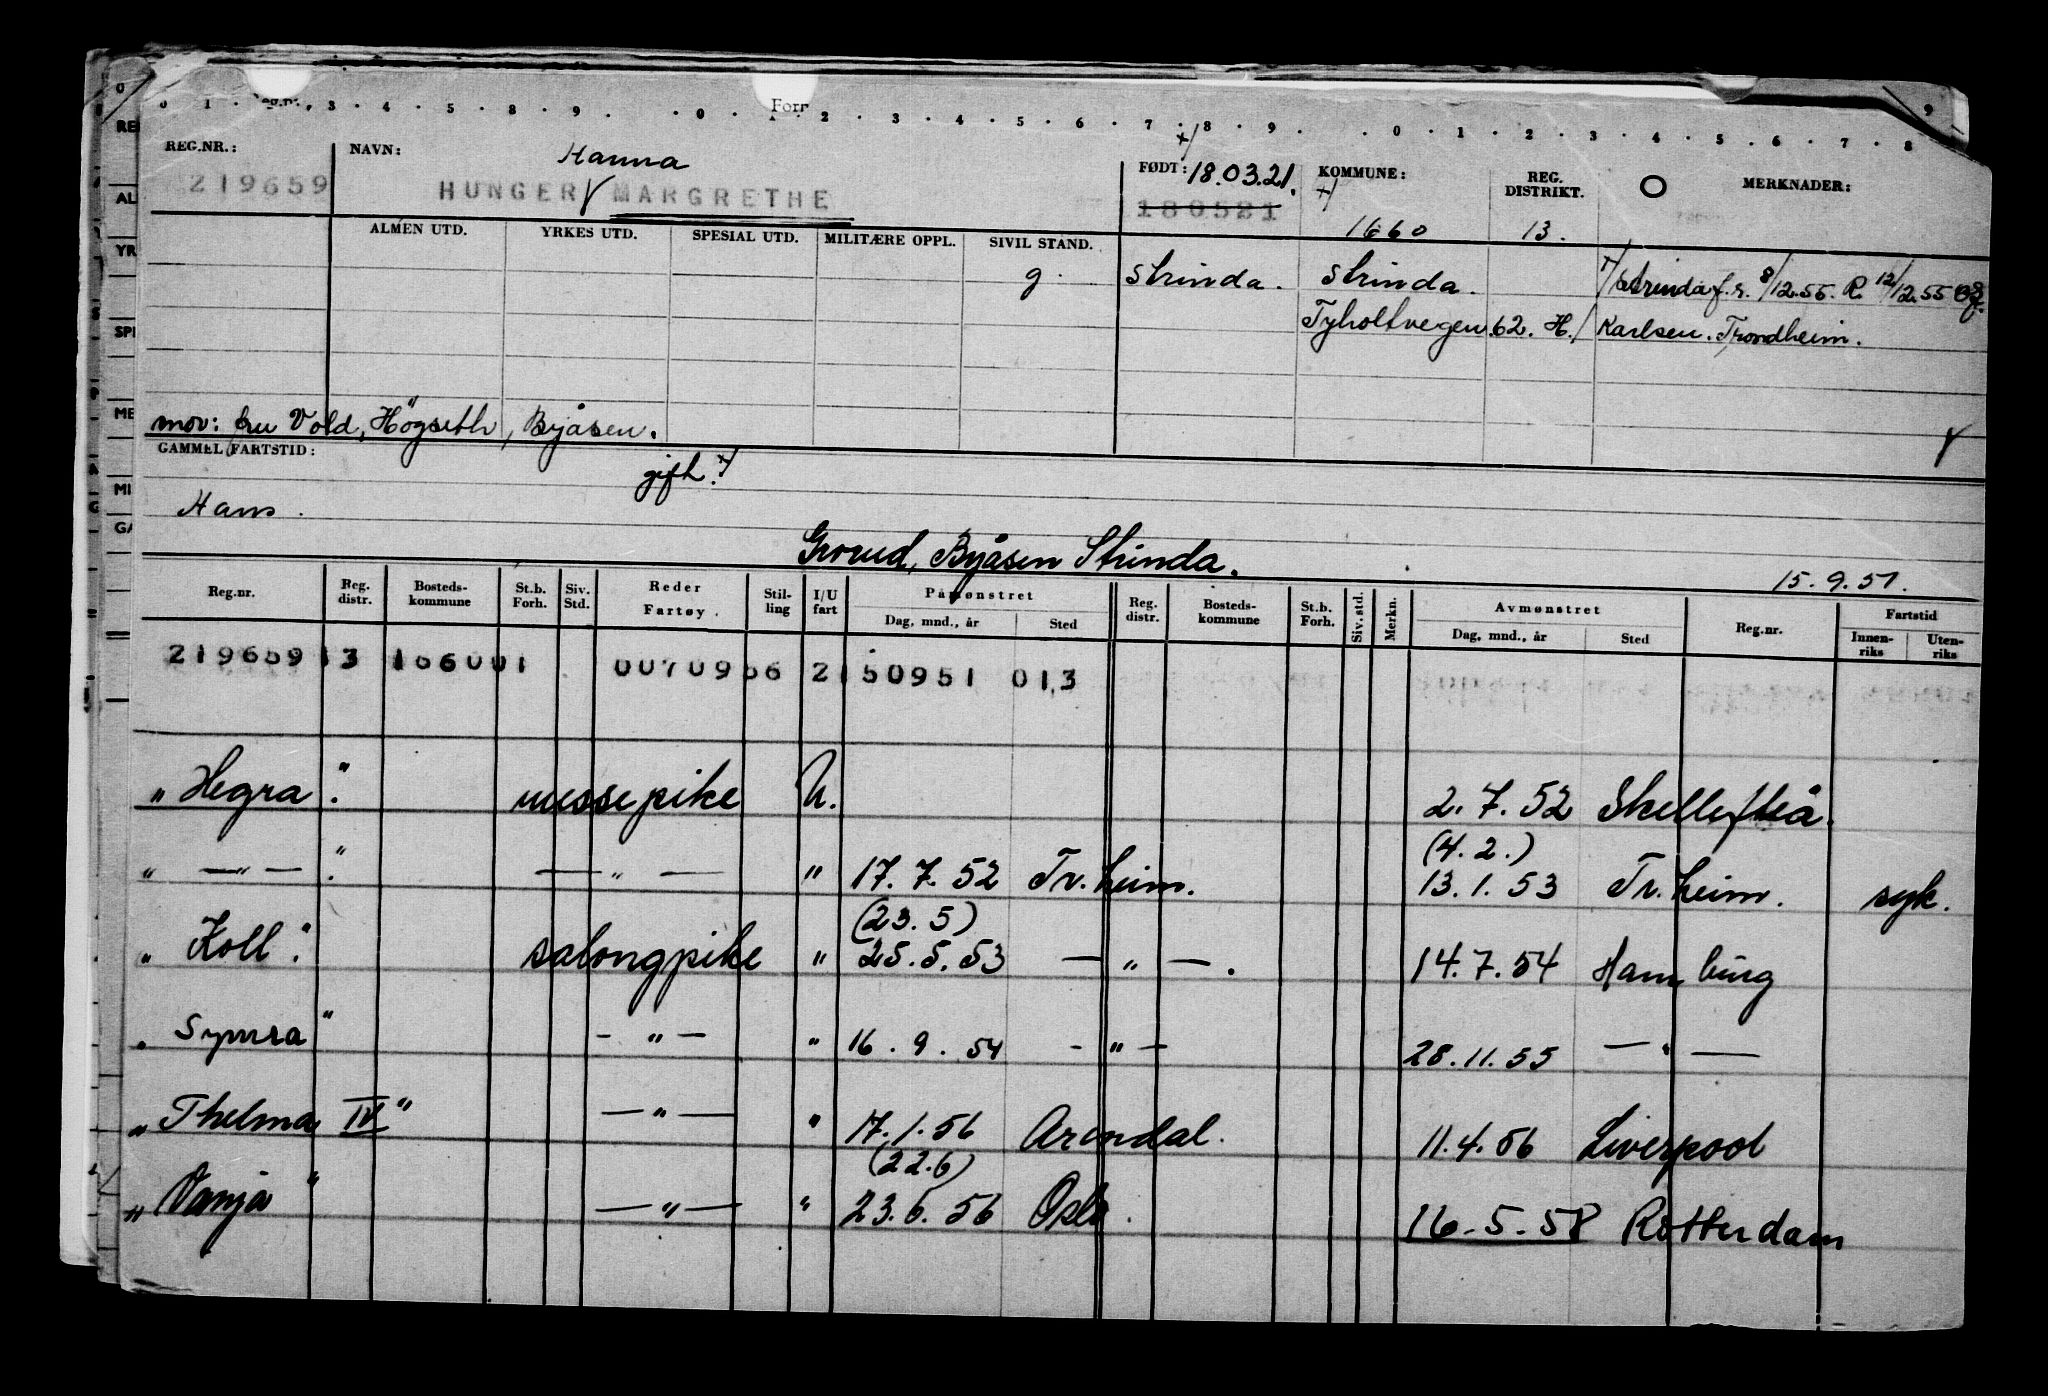 0 1 . Reg.nr. 3 . 4 . 5 . 8 . 9 . . 0 . Forr 2 . 3 . 4 . 5 . 6 . 7 . 8 . 9 . . 0 . 1 . 2 . 3 . 4 . 5 . 6 . 7 . 8 9
REG.NR.: NAVN: Hanna FØDT: 18.03.21. KOMMUNE: REG. DISTRIKT. O MERKNADER:
219659 HUNGER MARGRETHE 180521 1660 13.
ALMEN UTD. YRKES UTD. SPESIAL UTD. MILITÆRE OPPL. SIVIL STAND.
g Strinda. Strinda. Strinda f.r. 8/12.55. R. 12/12.55
Tyholtvegen 62. H. Karlsen. Trondheim.
mor: fru Vold, Högseth, Byåsen.
GAMMEL FARTSTID: gift.
Hans.
Groud, Byåsen Strinda. 15.9.51.
Reg.nr. Reg. distr. Bosteds-kommune St.b. Forh. Siv. Std. Reder Fartøy. Stil-ling I/U fart Påmønstret Dag, mnd., år Sted Reg. distr. Bosteds-kommune St.b. Forh. Siv. std. Merkn. Avmønstret Dag, mnd., år Sted Reg.nr. Fartstid Innen-riks Uten-riks
219659 13 166001 0070956 2 150951 013
"Hegra". messepike U. 2.7.52 Skellefteå.
" — " — ". — " — " 17.7.52 Tr.heim. (4.2.) 13.1.53 Tr.heim. syk.
"Koll". salongpike " (23.5) 25.5.53 — " —. 14.7.54 Hamburg
"Symra" — " — " 16.9.54 — " — 28.11.55 — " —
"Thelma IV" — " — " 17.1.56 Arendal. 11.4.56 Liverpool
"Vanja" — " — " (22.6) 23.6.56 Oslo. 16.5.58 Rotterdam